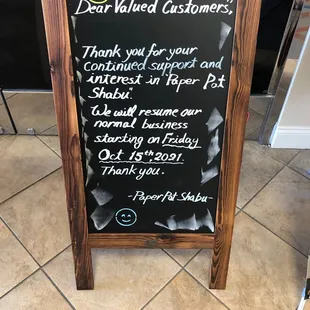 Dear Valued Customers,
Thank you for your
continued support and
interest in "Paper Pot
Shabu".
We will resume our
normal business
starting on Friday
Oct 15th, 2021.
Thank you.
-Paper Pot Shabu-